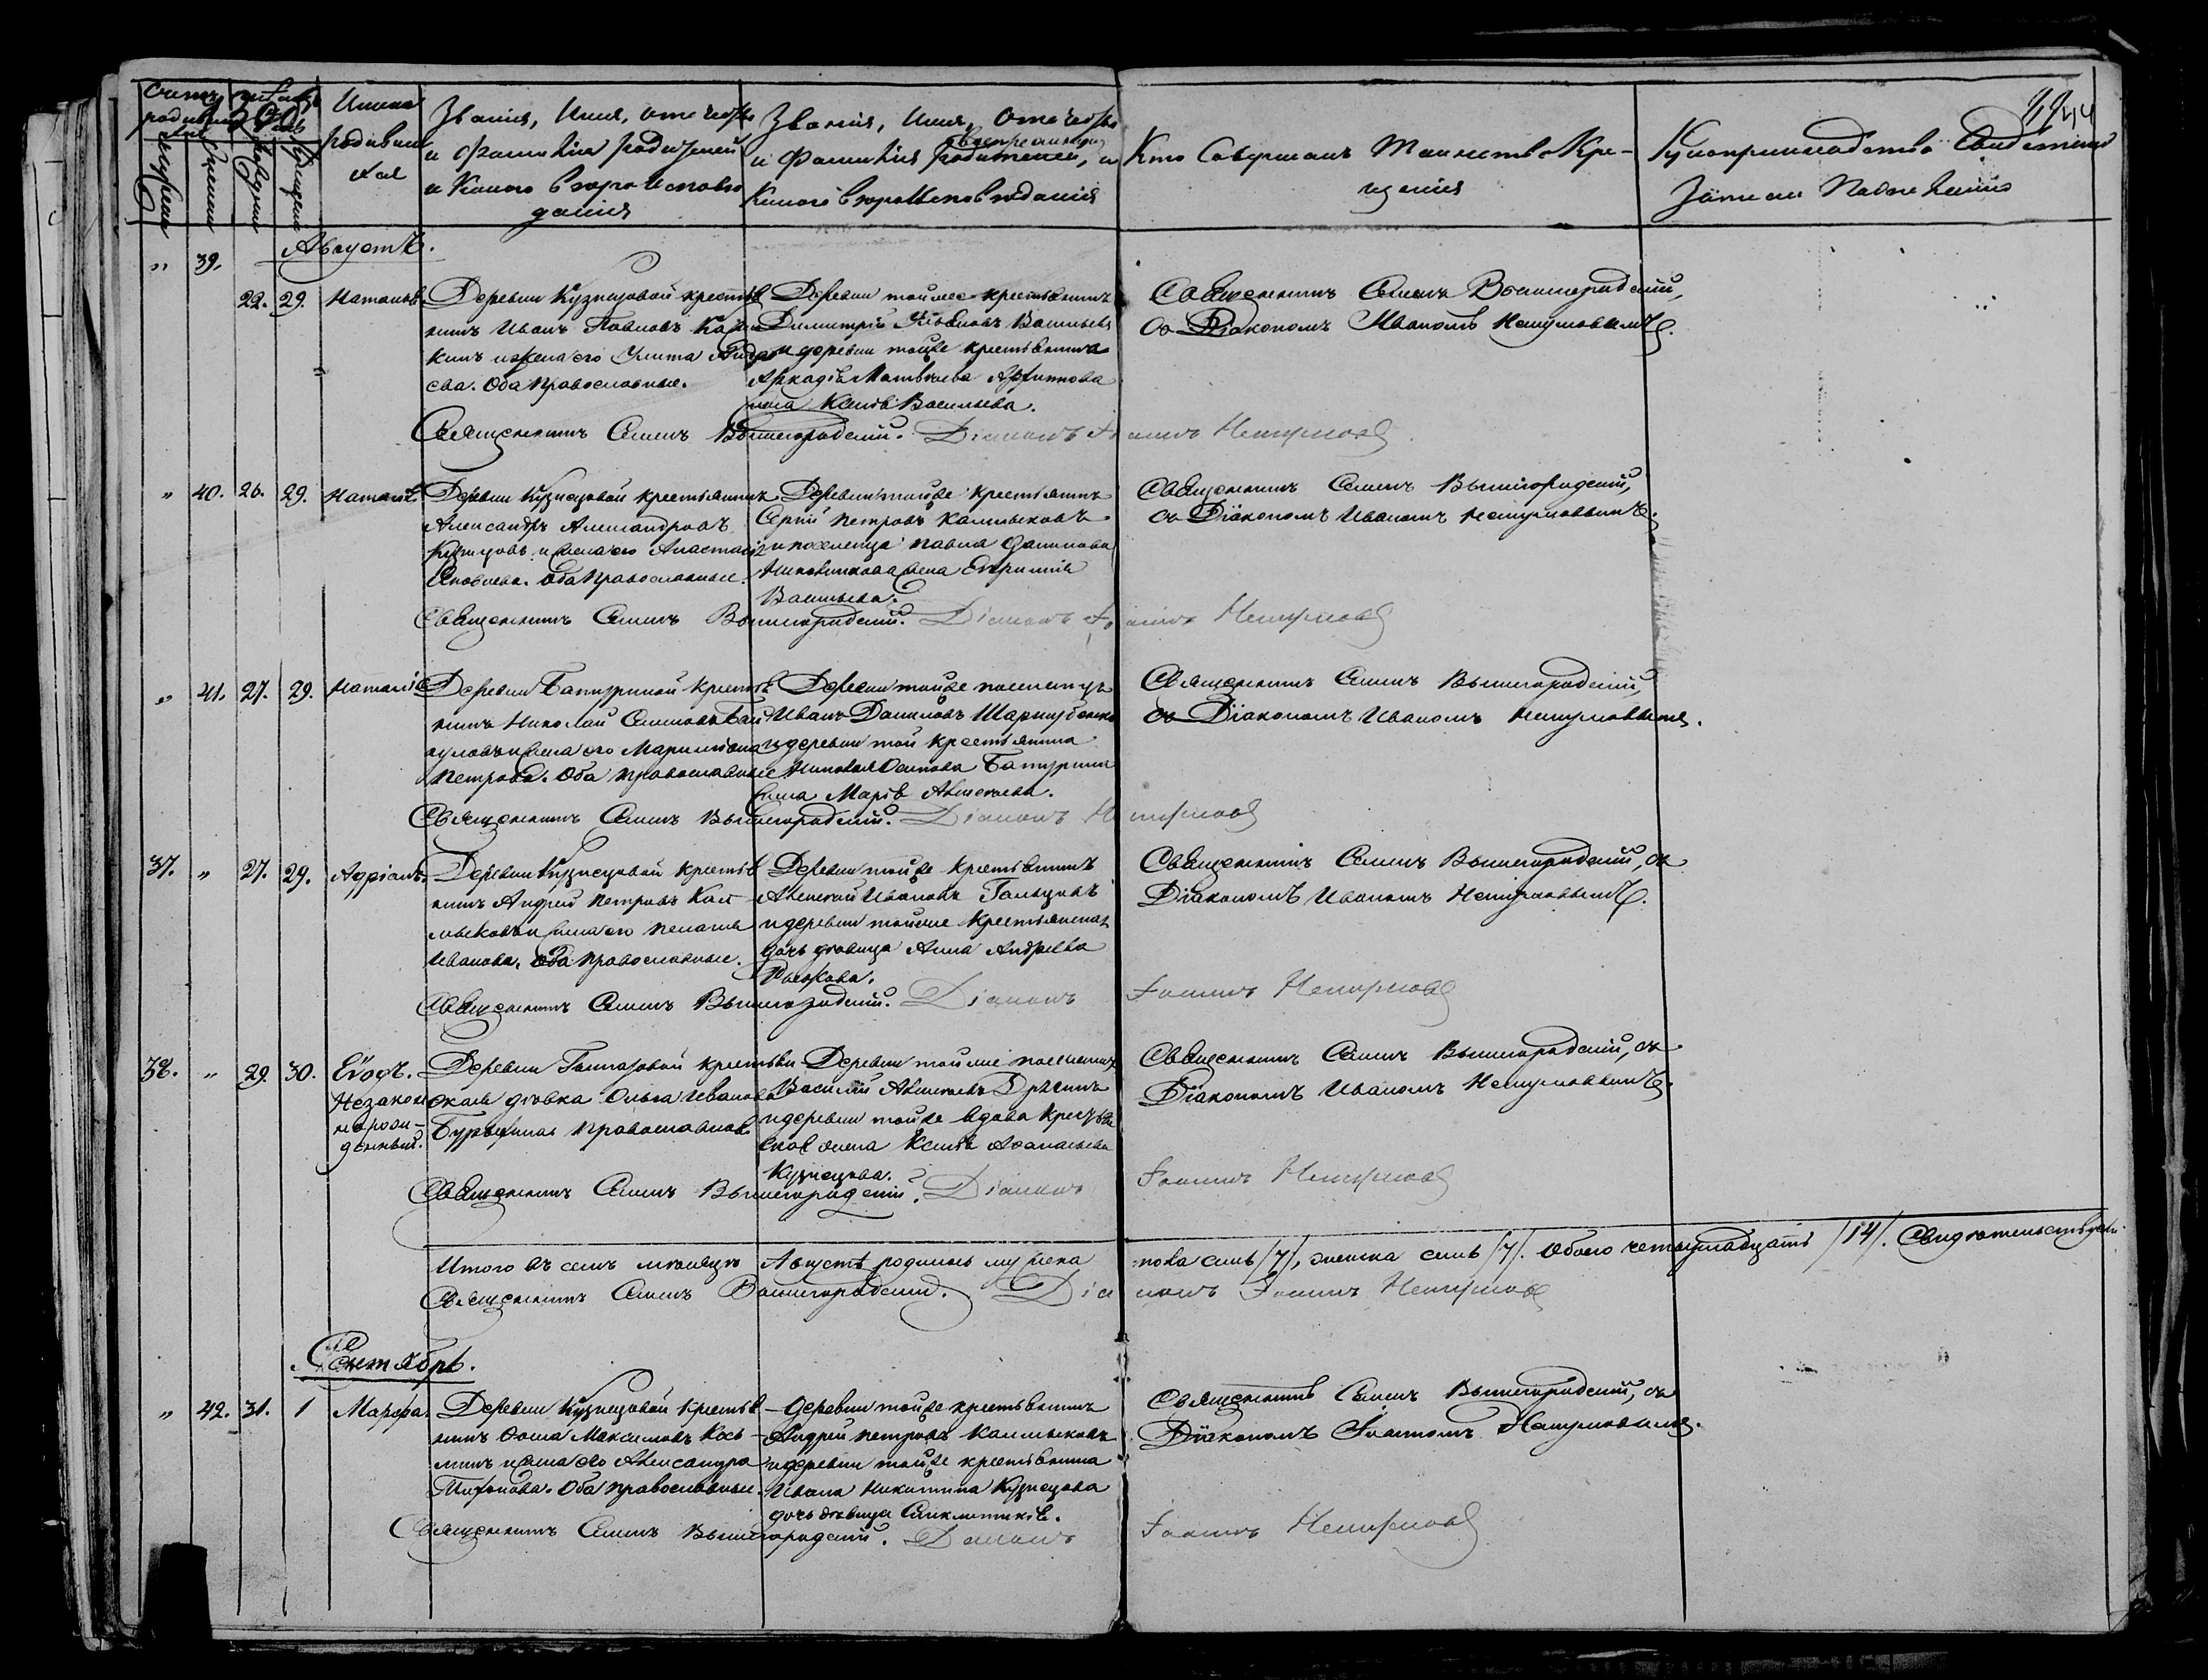 Счетъ родившихся
Мужеска
Женска
Рожденія
Крещенія
Имена родившихся
Званія, Имя, отчество
и Фамилія родителей
и Какого вѣроисповѣ
данія
Званія, Имя, Отчество
и Фамилія воспреемник, и
Какого вѣроисповѣданія
Кто Совершалъ Таинство Кре-
щенія
Рукоприкладство Свидетелей
Записи По желанію
44
Августъ.
" 39. 22. 29. Наталія.
Деревни Кузнецовой крестья
нинъ Иванъ Павловъ
кинъ и жена его Улита Андре
ева. Оба православные.
Деревни тойже крестьянинъ
Димитрій Яковлевъ Васильевъ
и деревни тойже крестьянина
Аркадія Матвѣева
жена Ксенія Васильева.
Священникъ Семенъ Вышегородскій,
съ Діакономъ Иваномъ
Священникъ Семенъ Вышегородскій. Діаконъ Іоаннъ
" 40. 26. 29. Наталія.
Деревни Кузнецовой крестьянинъ
Александръ Александровъ
Кузнецовъ и жена его Анастасія
Яковлева. Оба православные.
Деревни тойже крестьянинъ
Сергій Петровъ Калмыковъ
и поселенца Павла Данилова
жена Евфимія
Васильева.
Священникъ Семенъ Вышегородскій,
съ Діакономъ Иваномъ
Священникъ Семенъ Вышегородскій. Діаконъ Іоаннъ
" 41. 27. 29. Наталія
Деревни Батуриной крестья
нинъ Николай Семеновъ Бай
куловъ и жена его Марилліана
Петрова. Оба православные
Деревни тойже поселенецъ
Иванъ Даниловъ
и деревни той крестьянина
Николая Осипова Батурина
жена Марія Алексеева.
Священникъ Семенъ Вышегородскій,
съ Діакономъ Иваномъ
Священникъ Семенъ Вышегородскій. Діаконъ
37. " 27. 29. Адріанъ.
Деревни Кузнецовой крестья
нинъ Андрей Петровъ Кал-
мыковъ и жена его Пелагія
Иванова. Оба православные.
Деревни тойже крестьянинъ
Алексей Ивановъ Гальцовъ
и деревни тойже крестьянская
дочь дѣвица Анна Андреева
Священникъ Семенъ Вышегородскій, съ
Діакономъ Иваномъ
Священникъ Семенъ Вышегородскій. Діаконъ Іоаннъ
38. " 29. 30. Еводъ.
Незакон
норож-
денный.
Деревни крестьян
ская дѣвка Ольга Иванова
православная
Деревни тойже поселенецъ
Василій Алексеевъ
и деревни тойже вдова крестьян
ская жена Ксенія Афанасьева
Кузнецова.
Священникъ Семенъ Вышегородскій, съ
Діакономъ Иваномъ
Священникъ Семенъ Вышегородскій. Діаконъ Іоаннъ
Итого въ семъ мѣсяцѣ Августѣ родилось мужеска
пола семь /7/, женска семь /7/. Обоего четырнадцать /14/. Свидѣтельствуемъ
Священникъ Семенъ Вышегородскій. Діаконъ Іоаннъ
Сентябрь.
" 42. 31. 1 Марѳа.
Деревни Кузнецовой крестья
нинъ Ѳома Максимовъ Кось-
минъ и жена его Александра
Оба православные.
деревни тойже крестьянинъ
Андрей Петровъ Калмыковъ
и деревни тойже крестьянина
Ивана Никитина Кузнецова
дочь дѣвица Синклитикія.
Священникъ Семенъ Вышегородскій, съ
Діакономъ Іоанномъ
Священникъ Семенъ Вышегородскій. Діаконъ Іоаннъ